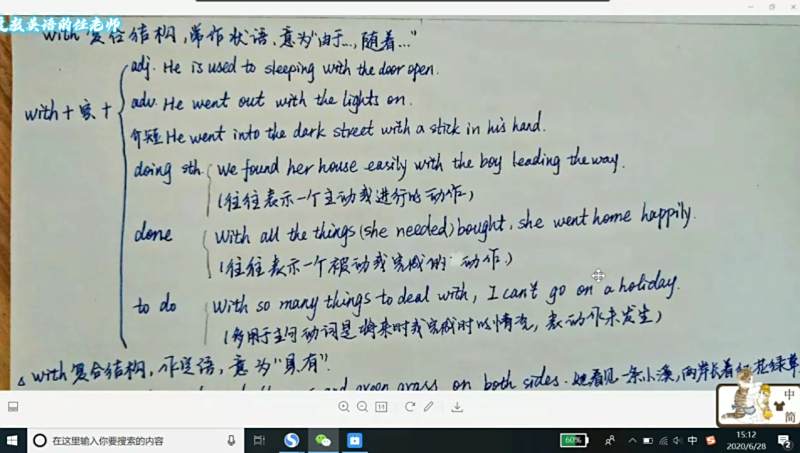 教英语的任老师
with复合结构,常作状语,意为"由于…,随着…"
with+宾+
adj. He is used to sleeping with the door open.
adv. He went out with the lights on.
介短 He went into the dark street with a stick in his hand.
doing sth. We found her house easily with the boy leading the way.
(往往表示一个主动或进行的动作)
done With all the things (she needed) bought, she went home happily.
(往往表示一个被动或完成的动作)
to do With so many things to deal with, I can't go on a holiday.
(多用于主句动词是将来时或完成时的情况,表动作未发生)
△ with复合结构,作定语,意为"具有".
and green grass on both sides. 她看见一条小溪,两岸长着红花绿草
中
简
在这里输入你要搜索的内容
60%
中
15:12
2020/6/28
2